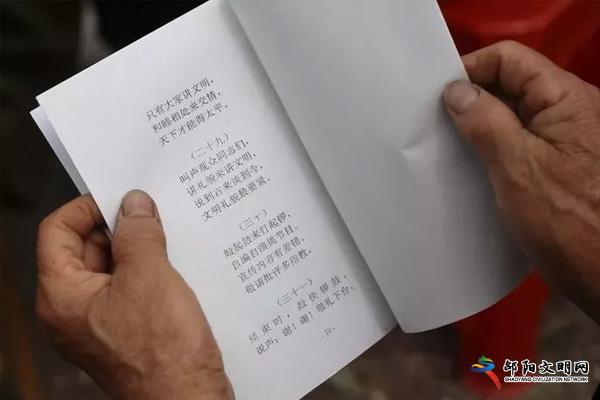 只有大家讲文明，
和睦相处来交情，
天下才能得太平。
（二十九）
叫声观众同志们，
讲礼貌来讲文明，
说到古来谈到今，
文明礼貌最要紧。
（三十）
敲起鼓来打起锣，
自编自演搞节目。
宣传内容有差错，
敬请批评多指教。
（三十一）
结束时，敲快锣鼓，
说声：谢！谢！敬礼下台。
·10·
邵阳文明网
SHAOYANG CIVILIZATION NETWORK